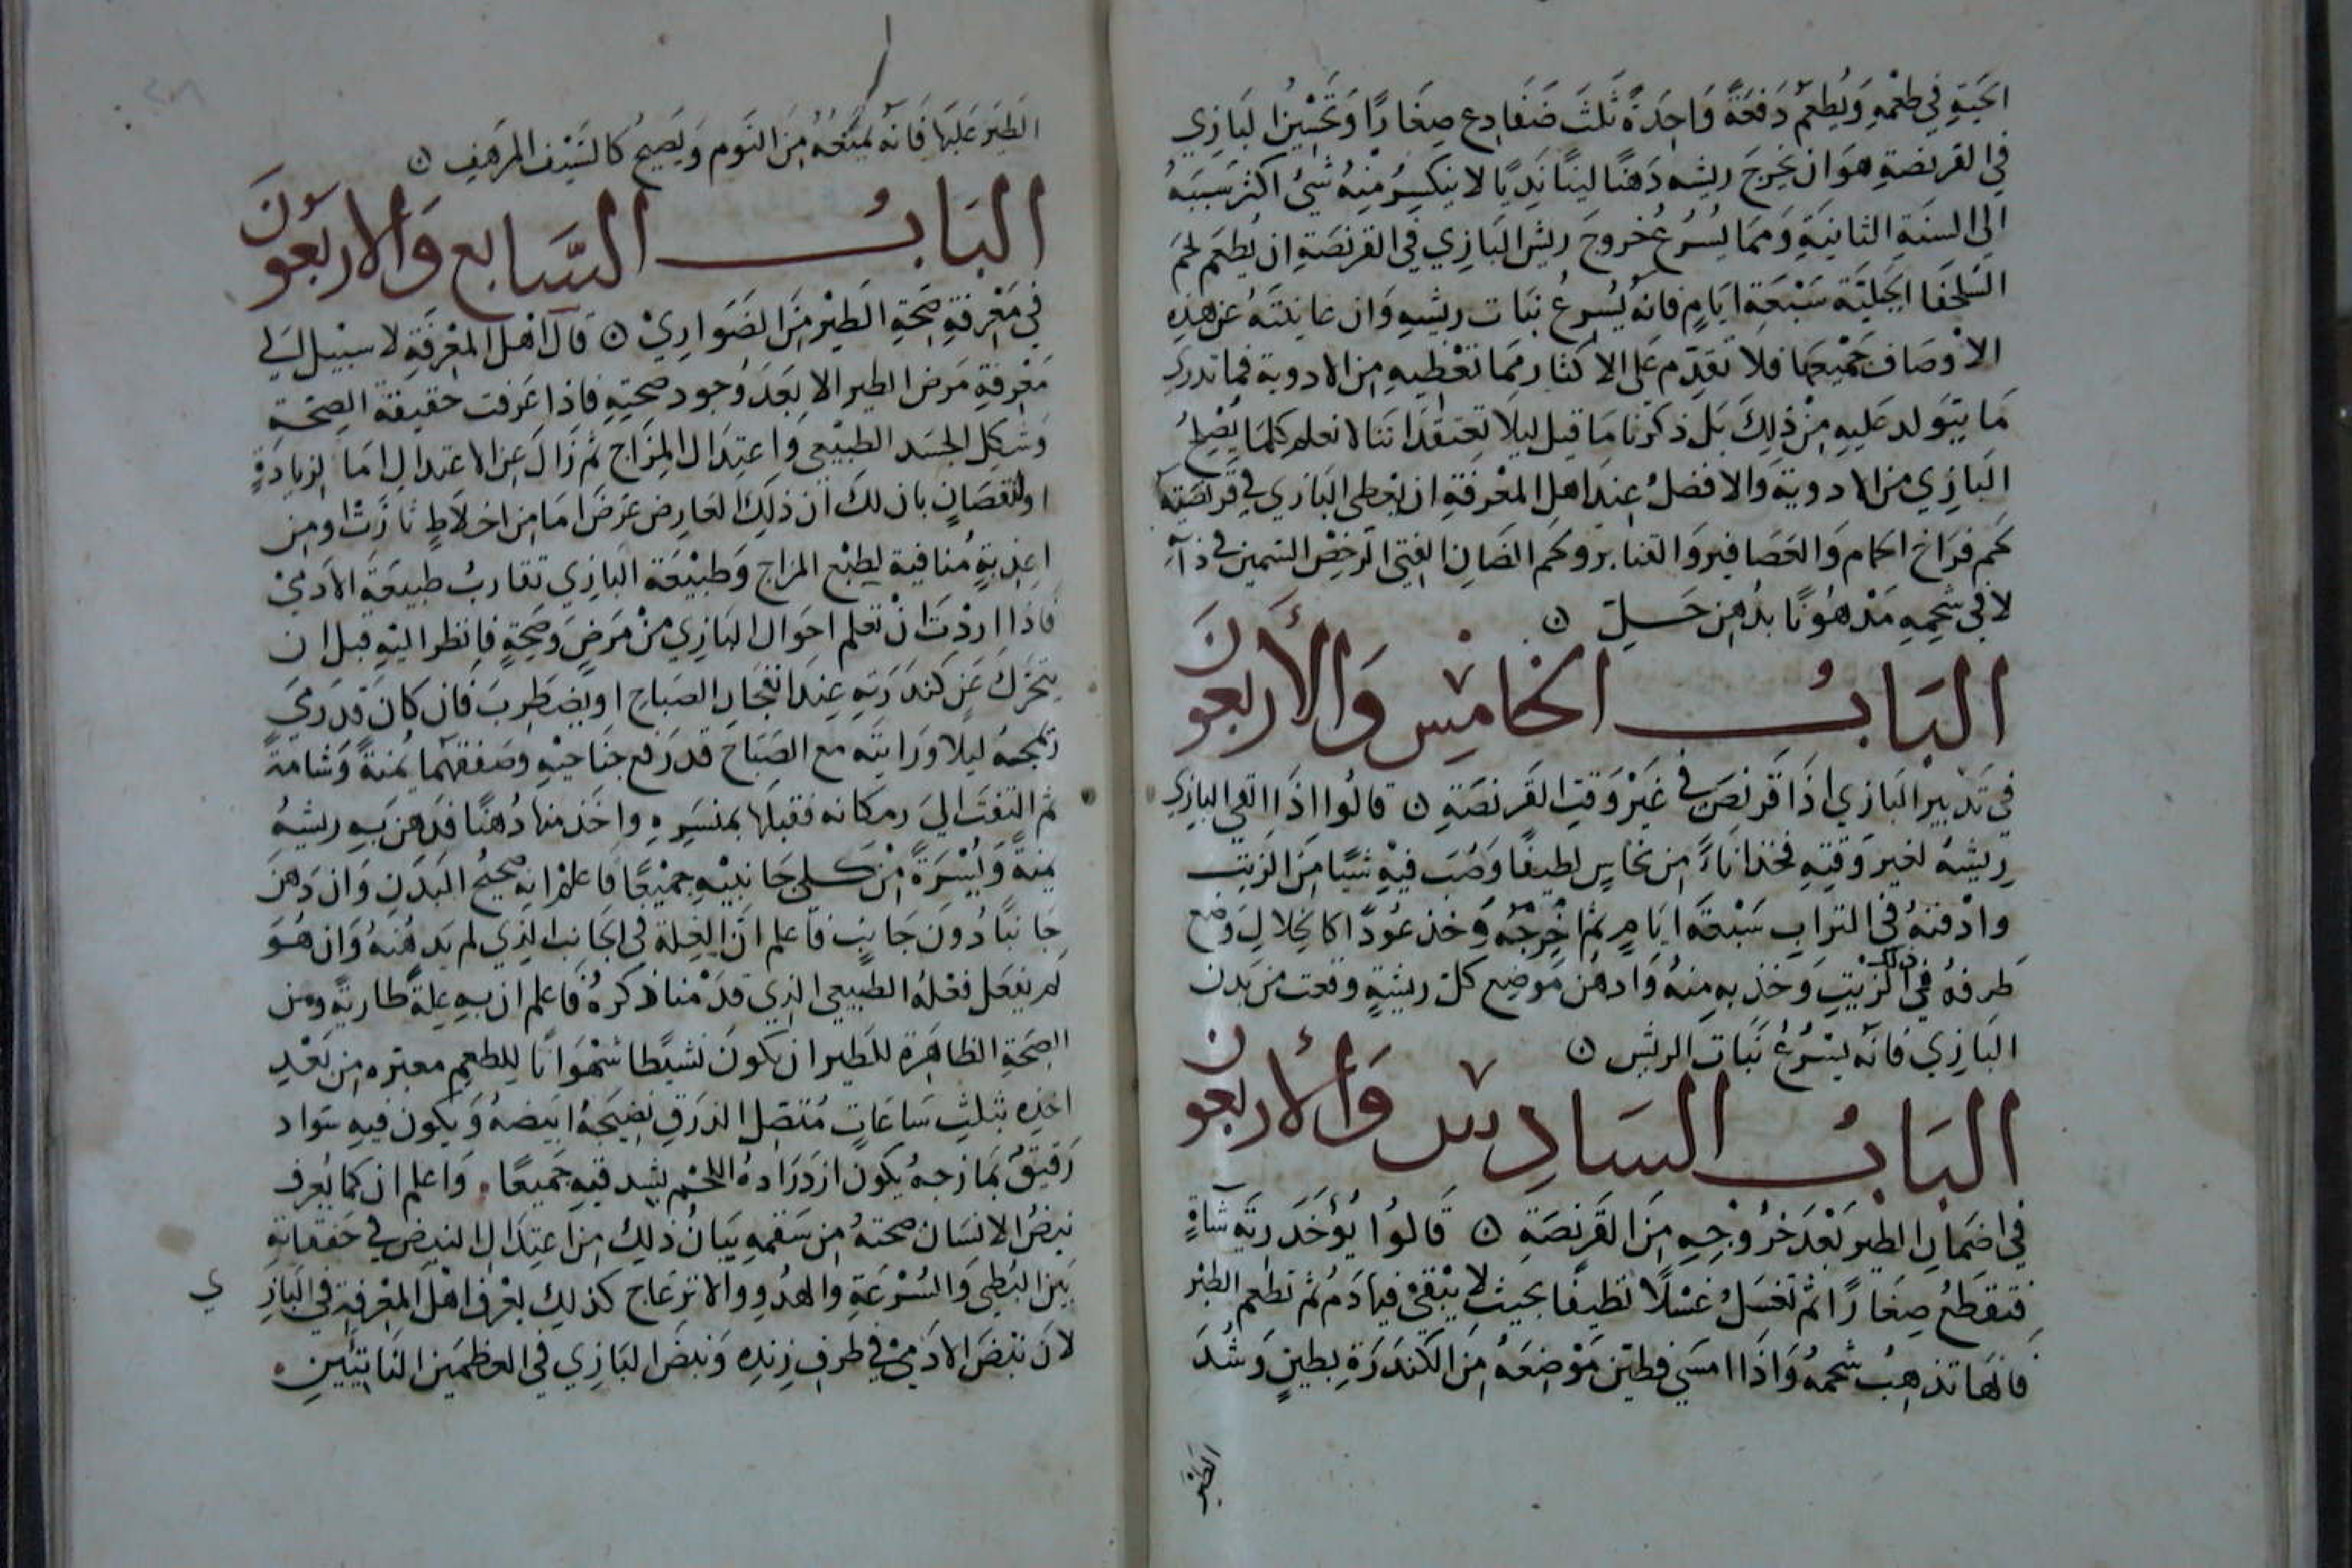 الحية في طعمه ويطعم دفعة واحدة ثلث ضفادع صغارًا وتحسين البازي
في القرنصة هو ان يخرج ريشه دهنًا لينًا نديًا لا ينكسر منه شئ اكثر سببه
الى السنة الثانية ومما يسرع خروج ريش البازي في القرنصة ان يطعم لحم
السلحفا الجبلية سبعة ايام فانه يسرع نبات ريشه وان عاينته عن هذه
الاوصاف جميعها فلا تقدم على الاكثار مما تعطيه من الادوية فما تدري
ما يتولد عليه من ذلك بل ذكرنا ما قيل ليلا تعتقد اننا لا نعلم كلما يصلح
البازي من الادوية والافضل عند اهل المعرفة ان يعطى البازي في قرنصته
لحم فراخ الحمام والعصافير والقنابر ولحم الضان الفتي الرخص السمين في ذاته
لا في شحمه مدهونًا بدهن حل ۞
الباب الخامس والأربعون
في تدبير البازي اذا قرنص في غير وقت القرنصة ۞ قالوا اذا القى البازي
ريشه لغير وقته فخذ اناءً من نحاس لطيفًا وصب فيه شيًا من الزيت
وادفنه في التراب سبعة ايام ثم اخرجه وخذ عودًا كالخلال وضع
طرفه في ذلك الزيت وخذ به منه وادهن موضع كل ريشة وقعت من بدن
البازي فانه يسرع نبات الريش ۞
الباب السادس والأربعون
في اضمار الطير بعد خروجه من القرنصة ۞ قالوا يؤخذ رية شاةٍ
فتقطع صغارًا ثم تغسل غسلًا نظيفًا بحيث لا يبقى فيها دم ثم تطعم الطير
فانها تذهب شحمه واذا امسى فطين موضعه من الكندرة بطين وشد
الطير
الطير عليها فانه يمنعه من النوم ويصبح كالسيف المرهف ۞
الباب السابع والاربعون
في معرفة صحة الطير من الضواري ۞ قال اهل المعرفة لا سبيل الي
معرفة مرض الطير الا بعد وجود صحته فاذا عرفت حقيقة الصحة
وشكل الجسد الطبيعي واعتدال المزاج ثم زال عن الاعتدال اما لزيادةٍ
او لنقصانٍ بان لك ان ذلك العارض عرض اما من اخلاطٍ ثارت او من
اغذيةٍ منافية لطبع المزاج وطبيعة البازي تقارب طبيعة الادمي
فاذا اردت ان تعلم احوال البازي من مرض وصحةٍ فانظر اليه قبل ان
يتحرك عن كندرته عند انفجار الصباح او يضطرب فان كان قد رمي
رمجه ليلا ورايته مع الصباح قد رفع جناحيه وصفقهما يمنةً وشامةً
ثم التفت الي زمكانه فقبلها بمنسره واخذ منها دهنًا فدهن به ريشه
يمنةً ويسرةً من كلى جانبيه جميعًا فاعلم انه صحيح البدن وان دهن
جانبًا دون جانبٍ فاعلم ان العلة في الجانب الذي لم يدهنه وان هو
لم يفعل فعله الطبيعي الذي قدمنا ذكره فاعلم ان به علةً طارية ومن
الصحة الظاهرة للطير ان يكون نشيطًا شهوانًا للطعم معتبره من بعد
اخذه بثلث ساعاتٍ متصل الذرق نضيجه ابيضه ويكون فيه سواد
رقيق يمازجه يكون ازدراده اللحم بشدقيه جميعًا واعلم ان كما يعرف
نبض الانسان صحته من سقمه بيان ذلك من اعتدال النبض في خفقانه
بين البطى والسرعة والهدو والانزعاج كذلك يعرف اهل المعرفة في الباز
ي
لان نبض الادمي في طرف زنده ونبض البازي في العظمين الناتيين